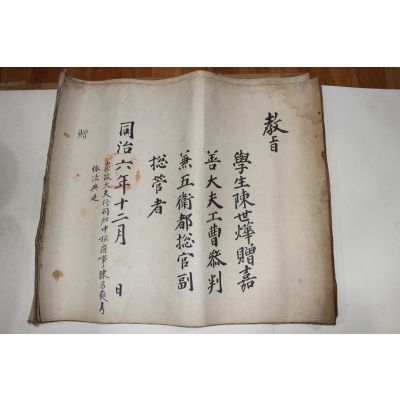 教旨
學生陳世燁贈嘉
善大夫工曹叅判
兼五衛都摠官副
摠管者
同治六年十二月 日
贈
崇政大夫行同知中樞府事陳昌奭考
依法典追